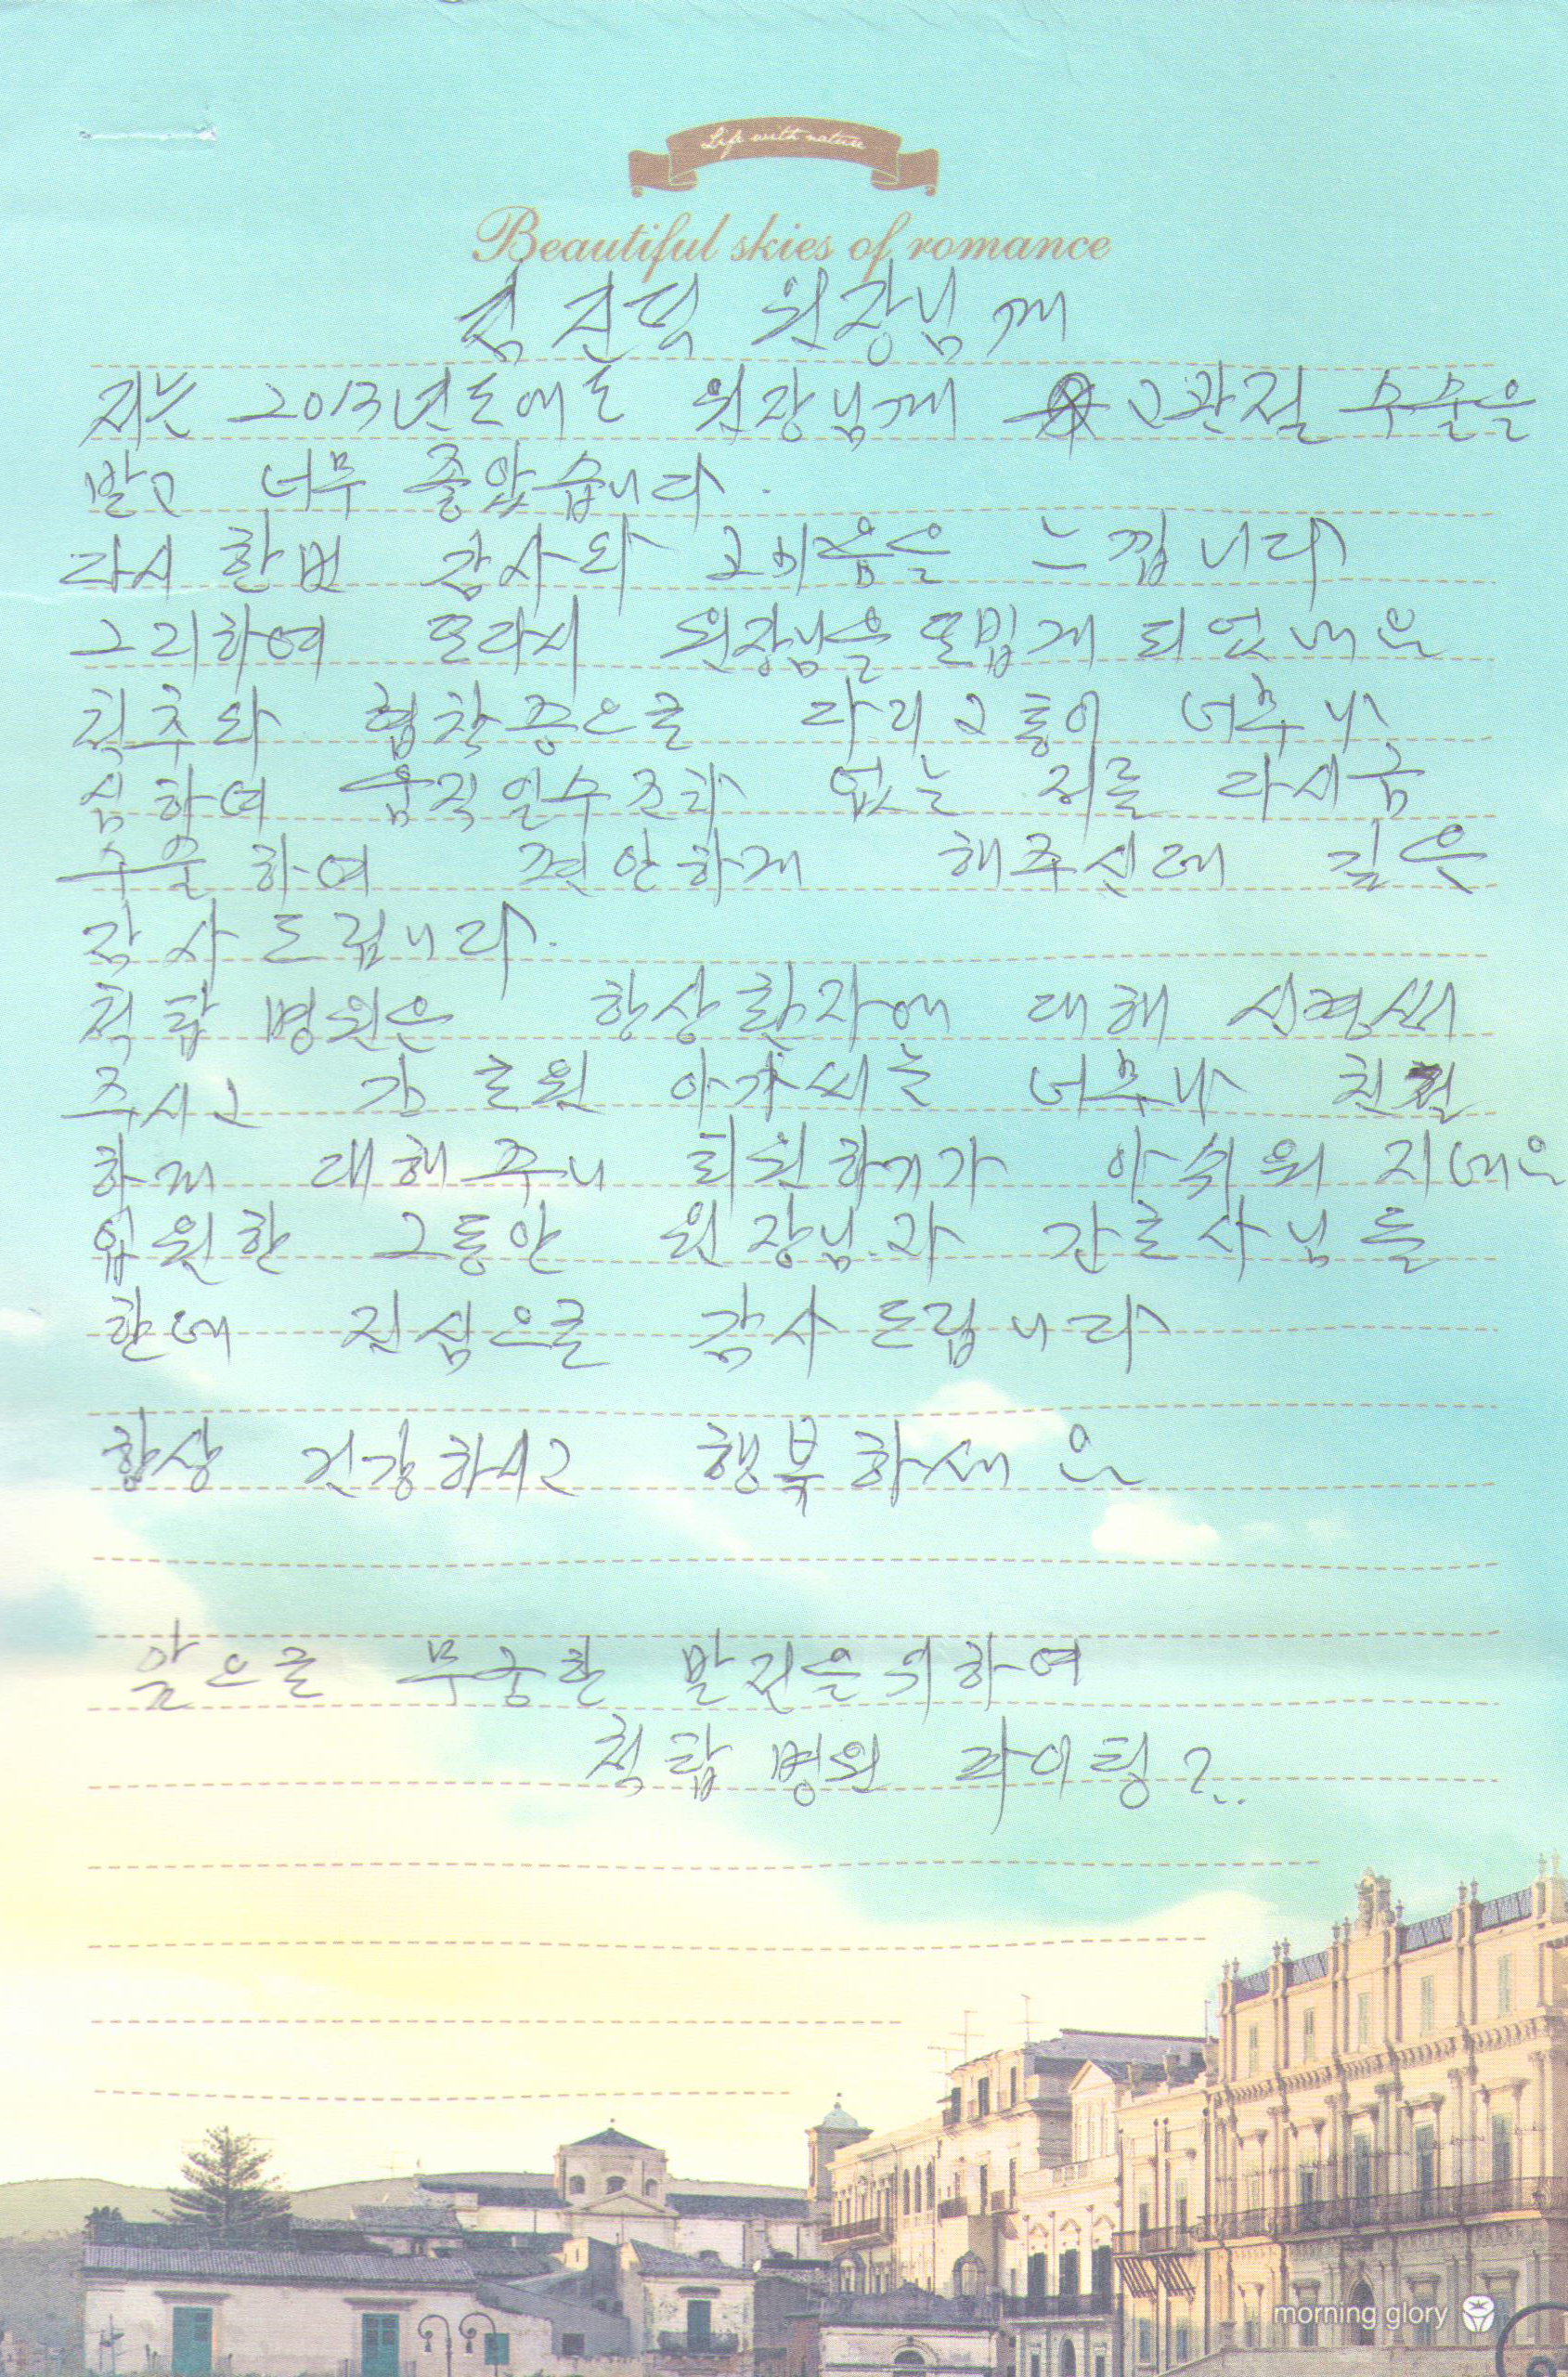 Life with nature
Beautiful skies of romance
원장님께
저는 2013년도에도 원장님께 고관절 수술을
받고 너무 좋았습니다.
다시 한번 감사와 고마움을 느낍니다
그리하여 또다시 원장님을 또 뵙게 되었네요
척추와 협착증으로 다리 고통이 너무나
심하여 움직일수 조차 없는 저를 다시금
수술하여 편안하게 해주신데 깊은
감사드립니다.
척탑병원은 항상 환자에 대해 신경써
주시고 간호원 아가씨는 너무나 친절
하게 대해주니 퇴원하기가 아쉬워 지네요
입원한 그동안 원장님과 간호사님들
한데 진심으로 감사드립니다
항상 건강하시고 행복하세요
앞으로 무궁한 발전을 위하여
척탑병원 파이팅?..
morning glory